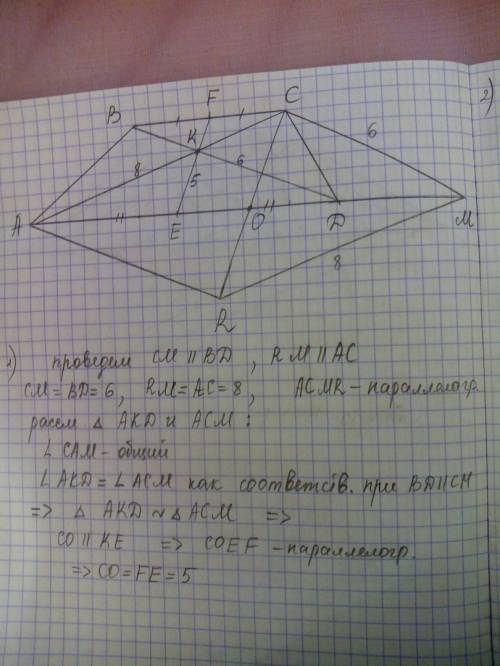 2)
B F C
K 6
8 6
5
A E O D M
8
R
1) проведем CM || BD , RM || AC
CM = BD = 6, RM = AC = 8, ACMR - параллелогр.
расcм △ AKD и ACM :
∠ CAM - общий
∠ AKD = ∠ ACM как соответств. при BD || CM
=> △ AKD ~ △ ACM =>
CO || KE => COEF - параллелогр.
=> CO = FE = 5